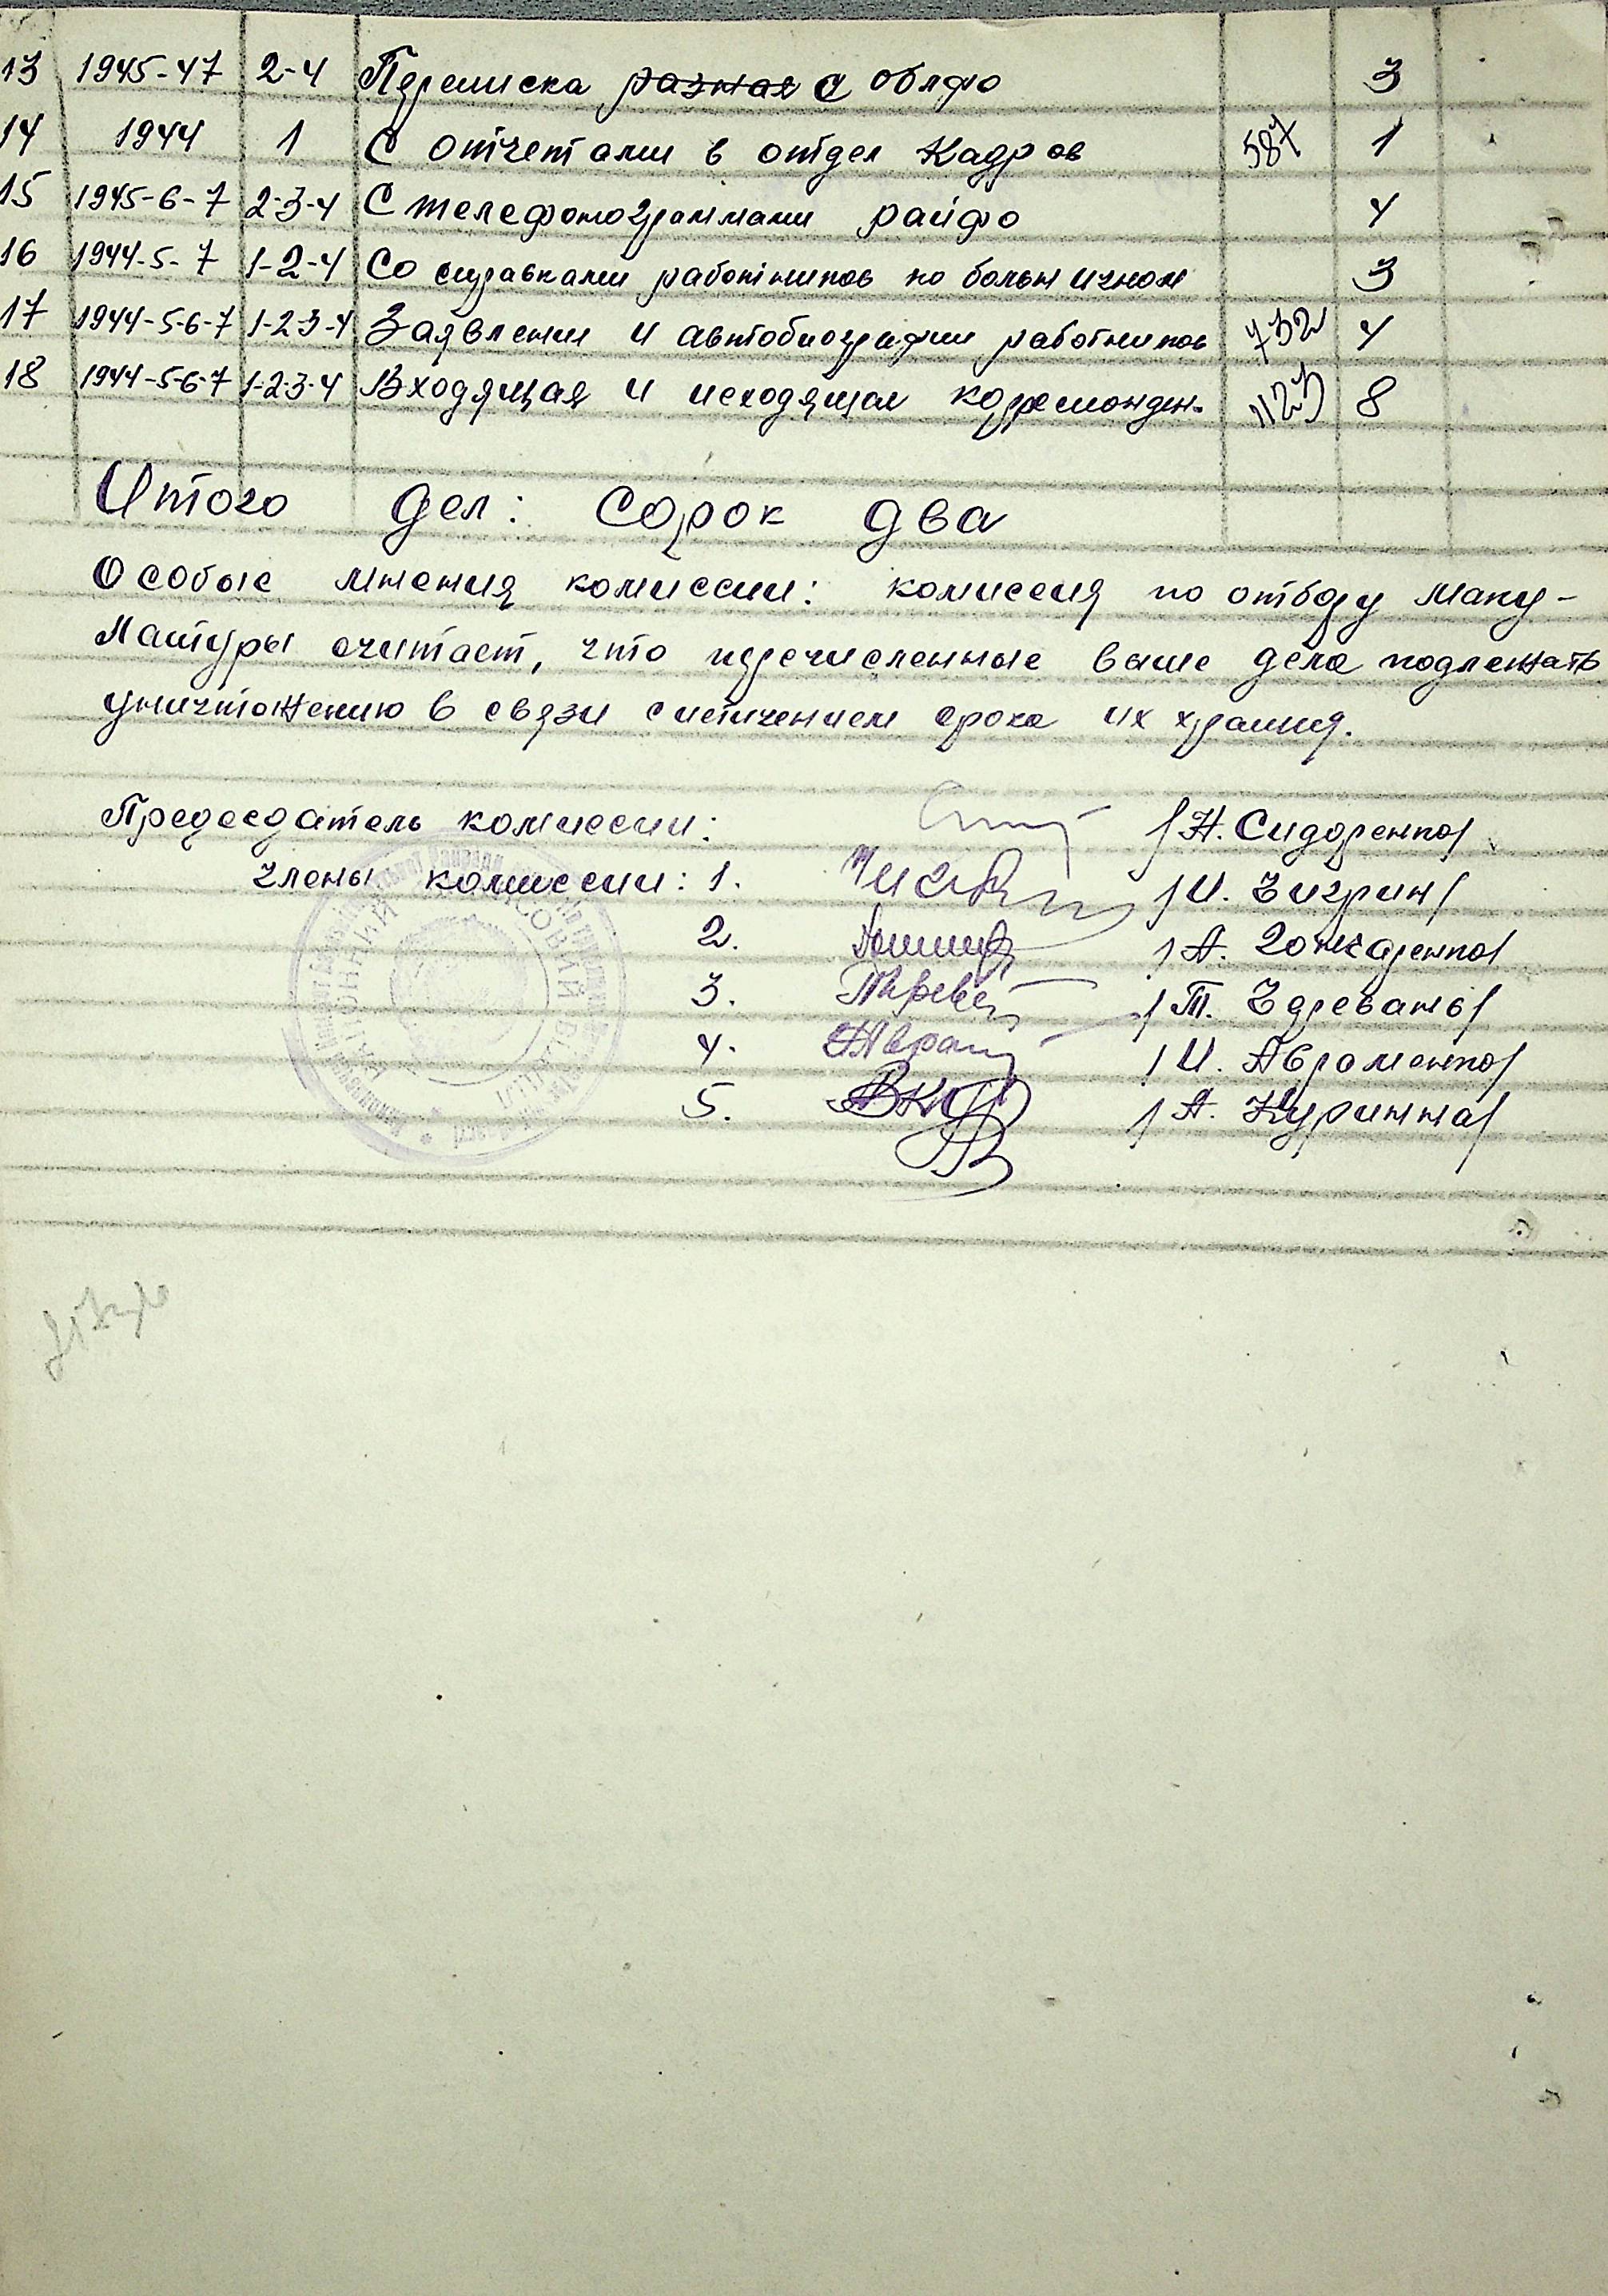 13 1945-47 2-4 Переписка разная с облфо 3
14 1944 1 С отчетами в отдел Кадров 587 1
15 1945-6-7 2-3-4 С телефонограммами райфо 4
16 1944-5-7 1-2-4 Со справками работников по больничном 3
17 1944-5-6-7 1-2-3-4 Заявлении и автобиографии работников 732 4
18 1944-5-6-7 1-2-3-4 Входящая и исходящая корреспонден. 1123 8
Итого дел: сорок два
Особые мнения комиссии: комиссия по отбору маку-
латуры считает, что перечисленные выше дела подлежать
уничтожению в связи с истичением срока их храния.
Председатель комиссии: /Н. Сидоренко/
Члены комиссии: 1. /И. Чигрин/
2. /А. Гончаренко/
3. /Т. Чередань/
4. /И. Авраменко/
5. /А. Куринна/
РАЙОННИЙ ФІНАНСОВИЙ ВІДДІЛ